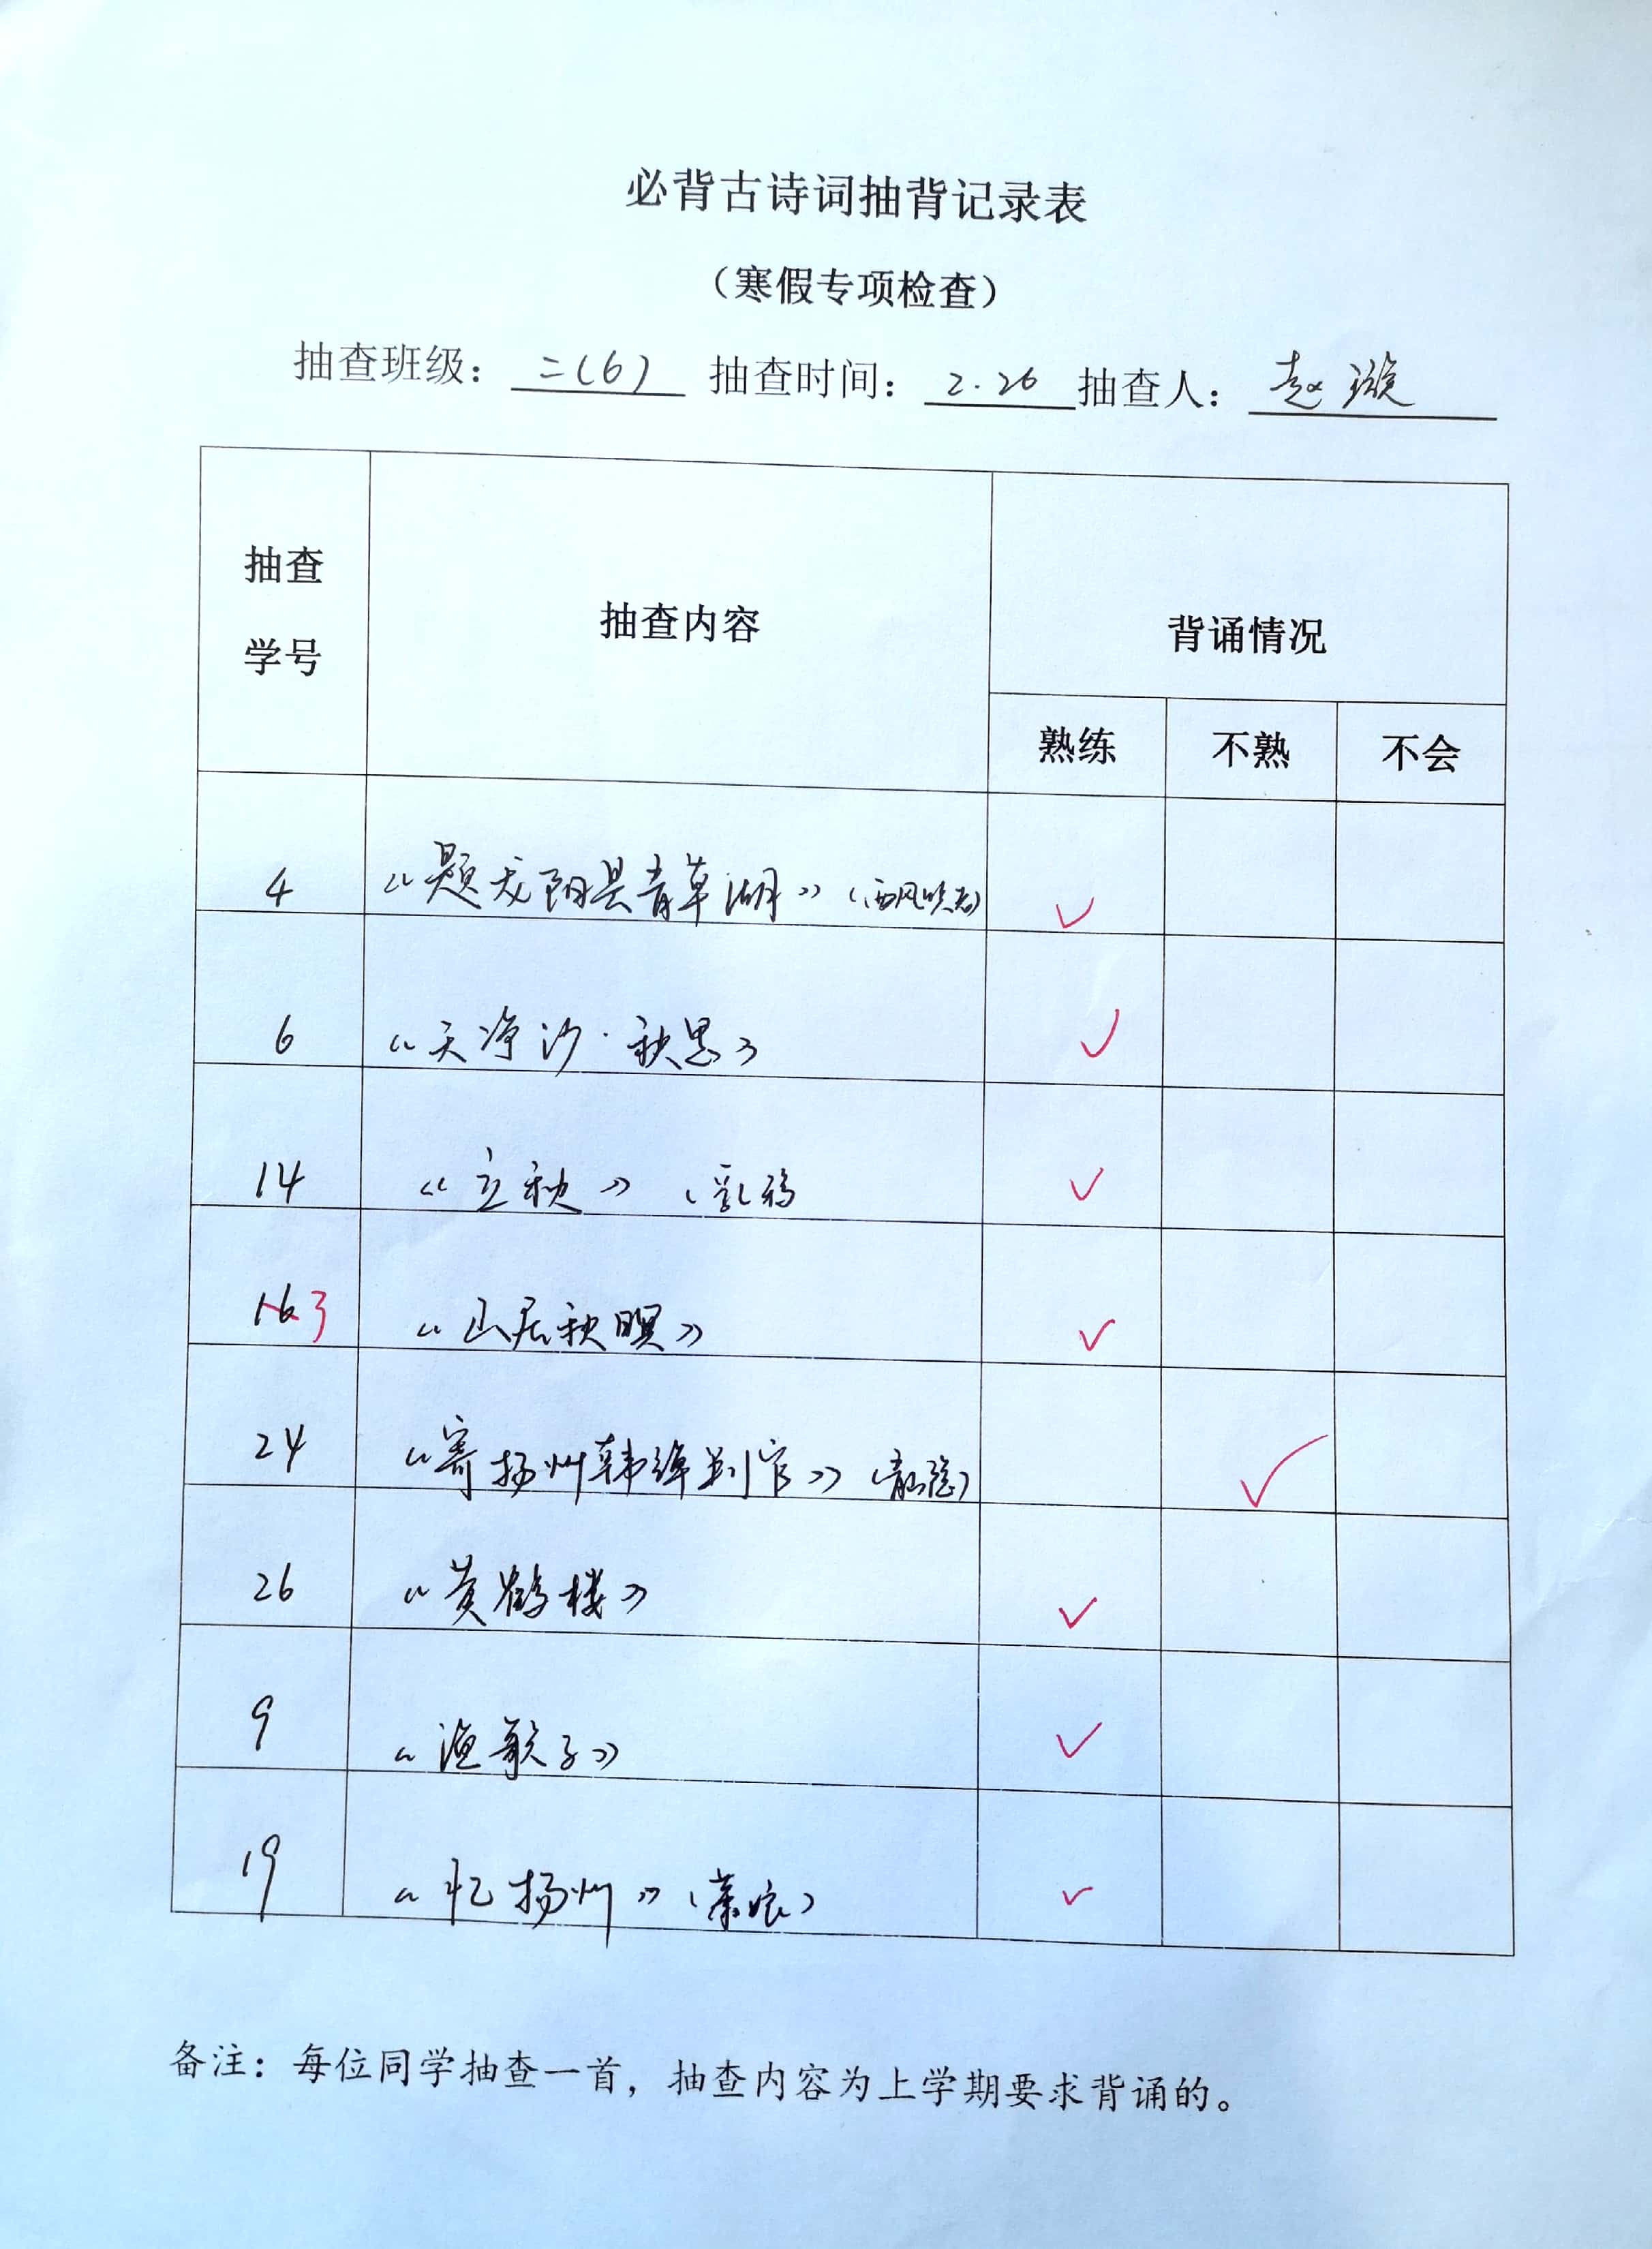 必背古诗词抽背记录表
（寒假专项检查）
抽查班级：二(6) 抽查时间：2.26 抽查人：赵璇
抽查学号 抽查内容 背诵情况
熟练 不熟 不会
4 《题龙阳县青草湖》（西风吹老） ✓
6 《天净沙·秋思》 ✓
14 《立秋》（乳鸦 ✓
3 《山居秋暝》 ✓
24 《寄扬州韩绰判官》（青山隐） ✓
26 《黄鹤楼》 ✓
9 《渔歌子》 ✓
19 《忆扬州》（萧娘） ✓
备注：每位同学抽查一首，抽查内容为上学期要求背诵的。